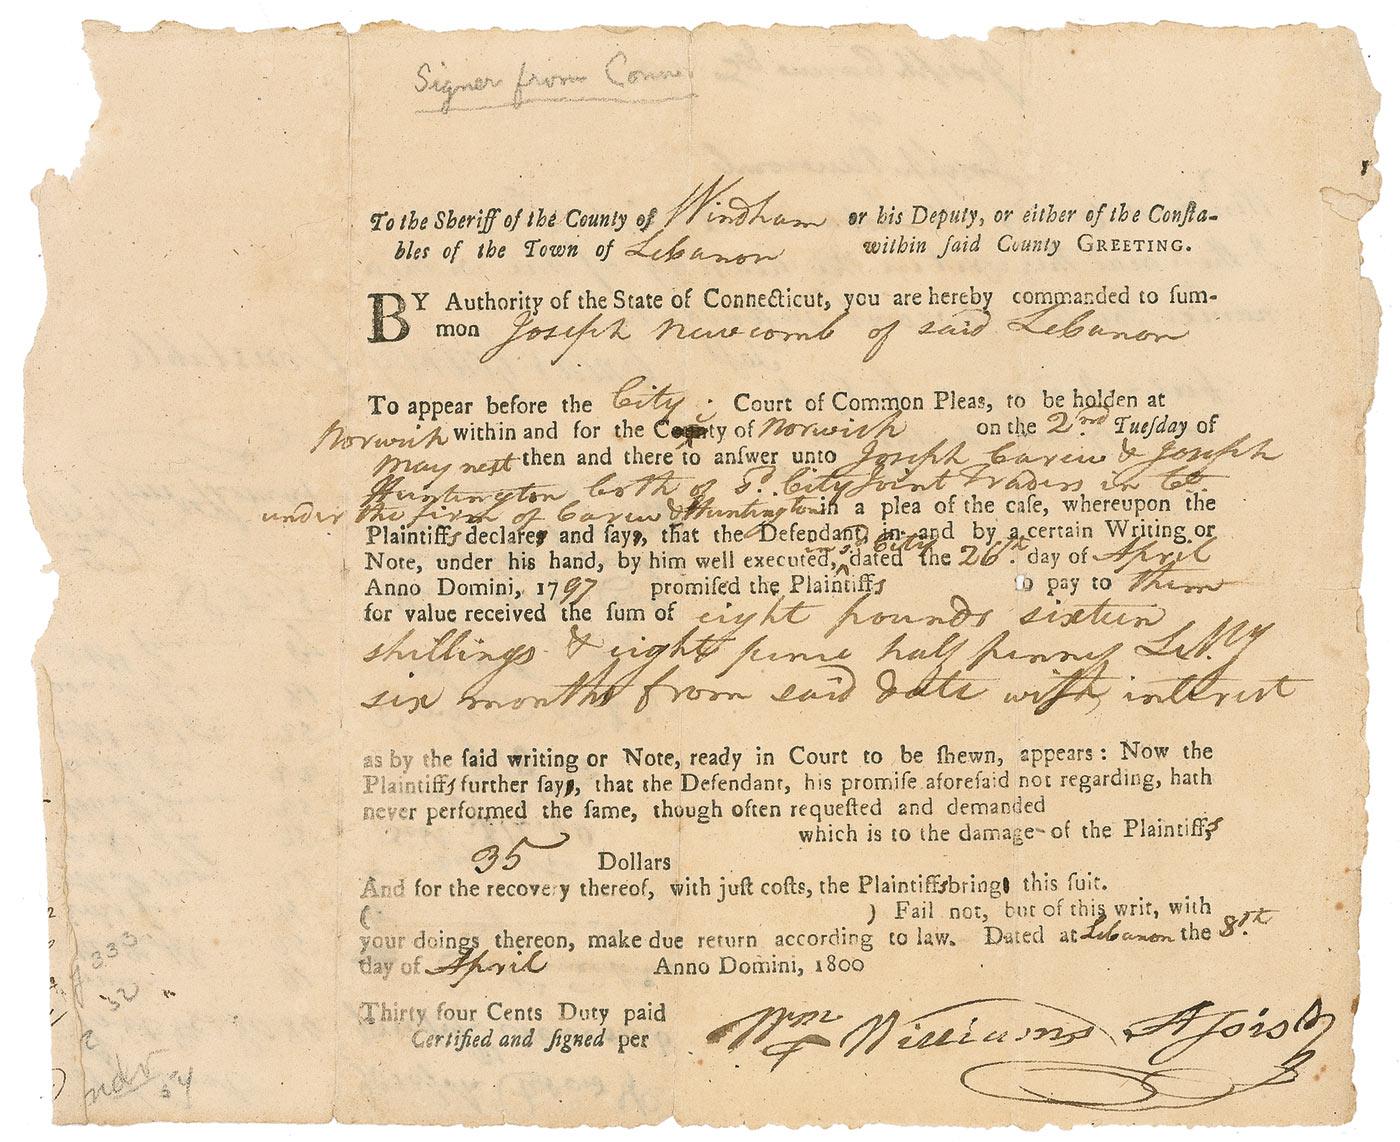 Signer from Conn.
To the Sheriff of the County of Windham or his Deputy, or either of the Consta-
bles of the Town of Lebanon within said County GREETING.
BY Authority of the State of Connecticut, you are hereby commanded to sum-
mon Joseph Newcomb of said Lebanon
To appear before the City Court of Common Pleas, to be holden at
Norwich within and for the County of Norwich on the 2nd Tuesday of
May next then and there to answer unto Joseph Carew & Joseph
Huntington both of sd. City Joint Traders in Co.
under the firm of Carew & Huntington in a plea of the case, whereupon the
Plaintiffs declare and say, that the Defendant, in and by a certain Writing or
Note, under his hand, by him well executed, in sd City dated the 26th. day of April
Anno Domini, 1797 promised the Plaintiffs to pay to them
for value received the sum of eight pounds sixteen
shillings & eight pence half penny L. My
six months from said date with interest
as by the said writing or Note, ready in Court to be shewn, appears: Now the
Plaintiffs further say, that the Defendant, his promise aforesaid not regarding, hath
never performed the same, though often requested and demanded
which is to the damage of the Plaintiffs
35 Dollars
And for the recovery thereof, with just costs, the Plaintiffs bring this suit.
( ) Fail not, but of this writ, with
your doings thereon, make due return according to law. Dated at Lebanon the 8th
day of April Anno Domini, 1800
Thirty four Cents Duty paid
Certified and signed per Wm Williams Assist
333
32
54